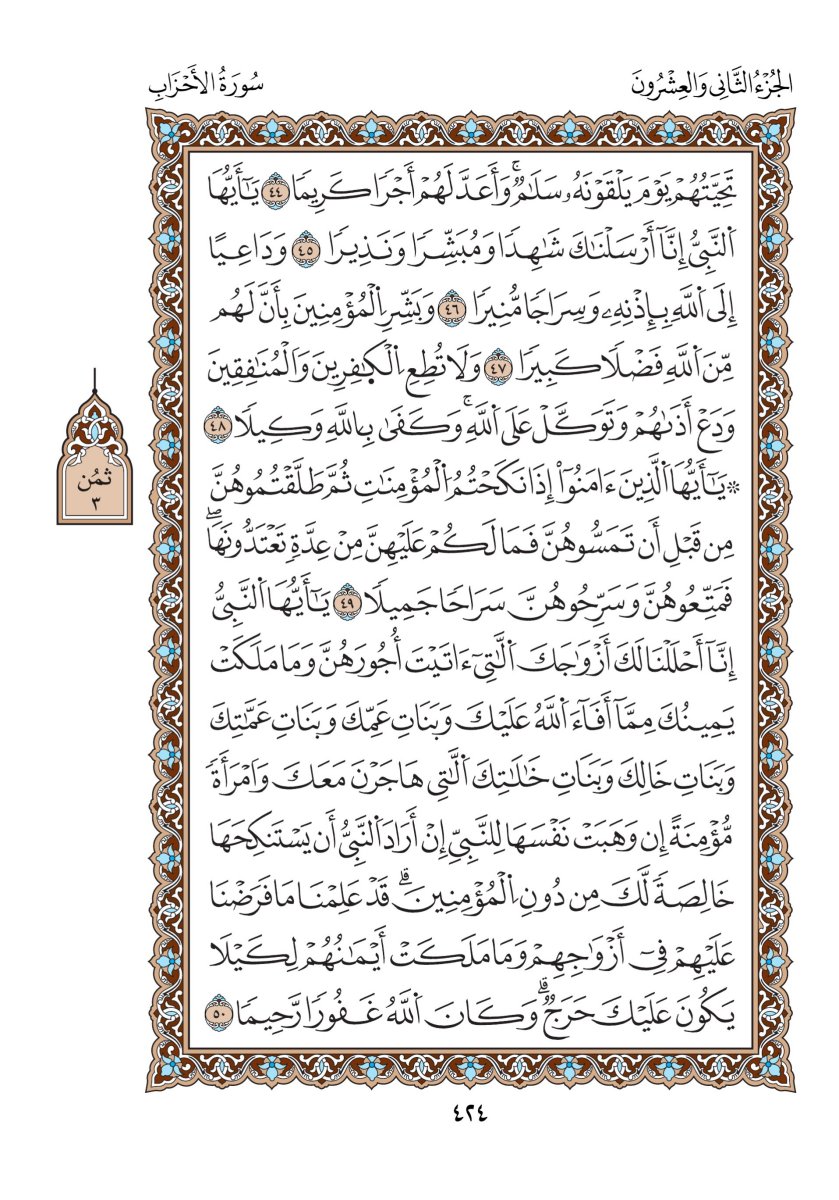 الجُزْءُ الثَّانِي وَالعِشْرُونَ
سُورَةُ الأَحْزَابِ
تَحِيَّتُهُمْ يَوْمَ يَلْقَوْنَهُۥ سَلَٰمٌۚ وَأَعَدَّ لَهُمْ أَجْرًا كَرِيمًا ٤٤ يَٰٓأَيُّهَا
ٱلنَّبِيُّ إِنَّآ أَرْسَلْنَٰكَ شَٰهِدًا وَمُبَشِّرًا وَنَذِيرًا ٤٥ وَدَاعِيًا
إِلَى ٱللَّهِ بِإِذْنِهِۦ وَسِرَاجًا مُّنِيرًا ٤٦ وَبَشِّرِ ٱلْمُؤْمِنِينَ بِأَنَّ لَهُم
مِّنَ ٱللَّهِ فَضْلًا كَبِيرًا ٤٧ وَلَا تُطِعِ ٱلْكَٰفِرِينَ وَٱلْمُنَٰفِقِينَ
وَدَعْ أَذَىٰهُمْ وَتَوَكَّلْ عَلَى ٱللَّهِۚ وَكَفَىٰ بِٱللَّهِ وَكِيلًا ٤٨
۞ يَٰٓأَيُّهَا ٱلَّذِينَ ءَامَنُوٓا۟ إِذَا نَكَحْتُمُ ٱلْمُؤْمِنَٰتِ ثُمَّ طَلَّقْتُمُوهُنَّ
مِن قَبْلِ أَن تَمَسُّوهُنَّ فَمَا لَكُمْ عَلَيْهِنَّ مِنْ عِدَّةٍ تَعْتَدُّونَهَاۖ
فَمَتِّعُوهُنَّ وَسَرِّحُوهُنَّ سَرَاحًا جَمِيلًا ٤٩ يَٰٓأَيُّهَا ٱلنَّبِيُّ
إِنَّآ أَحْلَلْنَا لَكَ أَزْوَٰجَكَ ٱلَّٰتِيٓ ءَاتَيْتَ أُجُورَهُنَّ وَمَا مَلَكَتْ
يَمِينُكَ مِمَّآ أَفَآءَ ٱللَّهُ عَلَيْكَ وَبَنَاتِ عَمِّكَ وَبَنَاتِ عَمَّٰتِكَ
وَبَنَاتِ خَالِكَ وَبَنَاتِ خَٰلَٰتِكَ ٱلَّٰتِي هَاجَرْنَ مَعَكَ وَٱمْرَأَةً
مُّؤْمِنَةً إِن وَهَبَتْ نَفْسَهَا لِلنَّبِيِّ إِنْ أَرَادَ ٱلنَّبِيُّ أَن يَسْتَنكِحَهَا
خَالِصَةً لَّكَ مِن دُونِ ٱلْمُؤْمِنِينَۗ قَدْ عَلِمْنَا مَا فَرَضْنَا
عَلَيْهِمْ فِيٓ أَزْوَٰجِهِمْ وَمَا مَلَكَتْ أَيْمَٰنُهُمْ لِكَيْلَا
يَكُونَ عَلَيْكَ حَرَجٌۗ وَكَانَ ٱللَّهُ غَفُورًا رَّحِيمًا ٥٠
ثُمُن
٣
٤٢٤